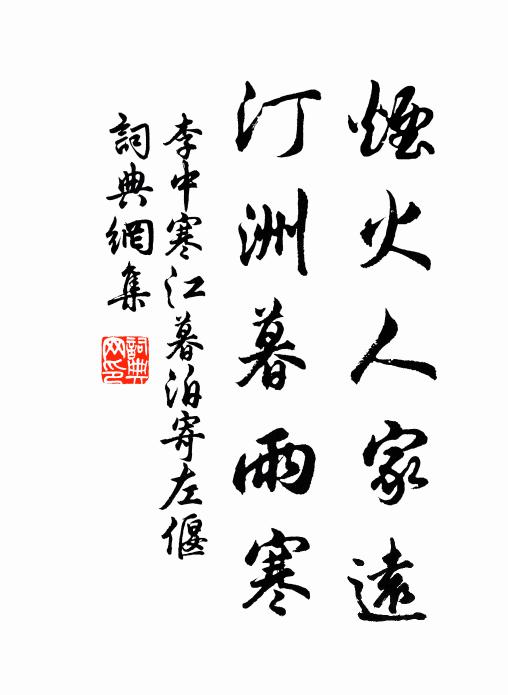 煙火人家遠
汀洲暮雨寒
李中寒江暮泊寄左偃
詞典網集
詞典網印